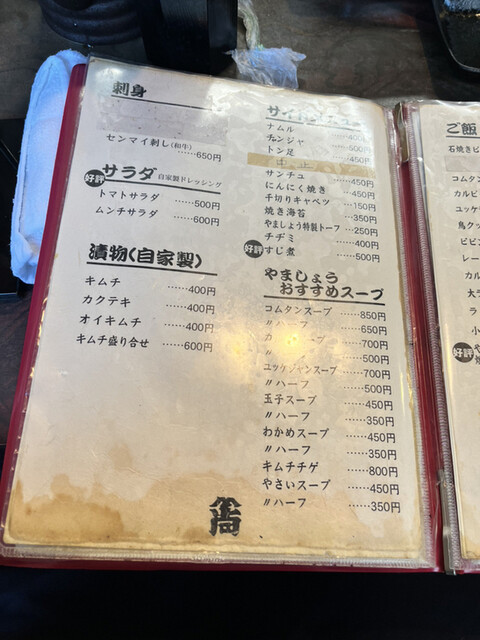 刺身
センマイ刺し(和牛)
……650円
好評 サラダ 自家製ドレッシング
トマトサラダ ……500円
ムンチサラダ ……600円
漬物(自家製)
キムチ ……400円
カクテキ ……400円
オイキムチ ……400円
キムチ盛り合せ ……600円
ナムル ……400円
チャンジャ ……500円
トン足 ……450円
サンチュ ……450円
にんにく焼き ……450円
千切りキャベツ ……150円
焼き海苔 ……350円
やましょう特製トーフ …250円
チヂミ ……400円
好評 すじ煮 ……500円
やましょう
おすすめスープ
コムタンスープ ……850円
〃ハーフ ……650円
スープ ……700円
〃ハーフ ……500円
ユッケジャンスープ ……700円
〃ハーフ ……500円
玉子スープ ……450円
〃ハーフ ……350円
わかめスープ ……450円
〃ハーフ ……350円
キムチチゲ ……800円
やさいスープ ……450円
〃ハーフ ……350円
ご飯
石焼きビ
コムタン
カルビ
ユッケ
鳥クッ
ビビン
レー
カル
大ラ
ラ
小
好評 や
焼